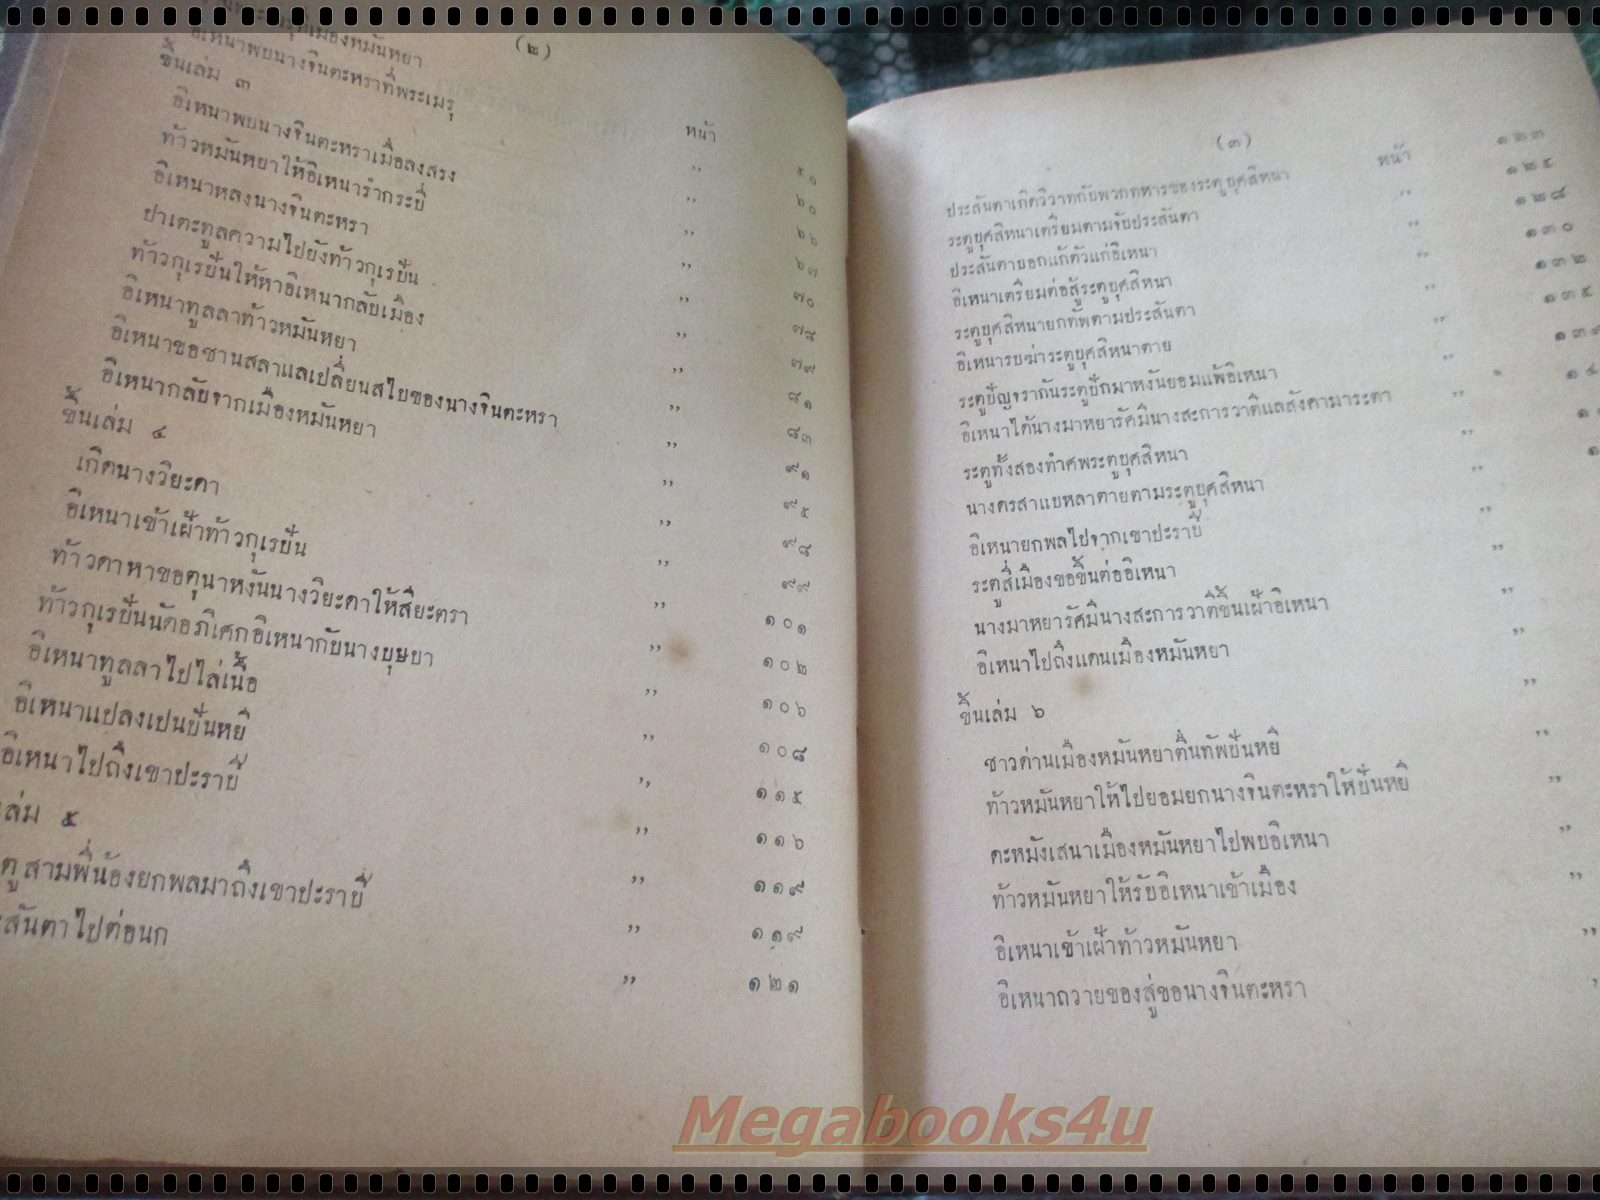 (๒)
เมืองหมันหยา
อิเหนาพบนางจินตะหราที่พระเมรุ
ขึ้นเล่ม ๓
หน้า
อิเหนาพบนางจินตะหราเมื่อลงสรง ,, ๕๐
ท้าวหมันหยาให้อิเหนารำกระบี่ ,, ๖๐
อิเหนาหลงนางจินตะหรา ,, ๖๖
ปาเตะทูลความไปยังท้าวกุเรปั่น ,, ๖๗
ท้าวกุเรปั่นให้หาอิเหนากลับเมือง ,, ๗๐
อิเหนาทูลลาท้าวหมันหยา ,, ๗๘
อิเหนาขอชานสลาแลเปลี่ยนสไบของนางจินตะหรา ,, ๗๙
อิเหนากลับจากเมืองหมันหยา ,, ๘๑
ขึ้นเล่ม ๔ ,, ๘๓
เกิดนางวิยะดา ,, ๙๑
อิเหนาเข้าเฝ้าท้าวกุเรปั่น ,, ๙๕
ท้าวดาหาขอตุนาหงันนางวิยะดาให้สียะตรา ,, ๙๘
ท้าวกุเรปั่นนัดอภิเศกอิเหนากับนางบุษบา ,, ๙๙
อิเหนาทูลลาไปไล่เนื้อ ,, ๑๐๑
อิเหนาแปลงเปนปั่นหยี ,, ๑๐๒
อิเหนาไปถึงเขาปะราปี ,, ๑๐๖
เล่ม ๕ ,, ๑๐๘
ตูสามพี่น้องยกพลมาถึงเขาปะราปี ,, ๑๑๕
สันตาไปต่อนก ,, ๑๑๖
,, ๑๑๙
,, ๑๑๙
,, ๑๒๑
(๓)
หน้า ๑๒๓
ประสันตาเกิดวิวาทกับพวกทหารของระตูบุศสิหนา ,, ๑๒๕
ระตูบุศสิหนาเตรียมตามจับประสันตา ,, ๑๒๘
ประสันตาบอกแก้ตัวแก่อิเหนา ,, ๑๓๐
อิเหนาเตรียมต่อสู้ระตูบุศสิหนา ,, ๑๓๒
ระตูบุศสิหนายกทัพตามประสันตา ,, ๑๓๕
อิเหนารบฆ่าระตูบุศสิหนาตาย ,,
ระตูปัญจรากันระตูปักมาหงันยอมแพ้อิเหนา ,,
อิเหนาได้นางมาหยารัศมีนางสะการะวาตีแลสังคามาระตา ,,
ระตูทั้งสองทำศพระตูบุศสิหนา ,,
นางดรสาแบหลาตายตามระตูบุศสิหนา ,,
อิเหนายกพลไปจากเขาปะราปี ,,
ระตูสี่เมืองขอขึ้นต่ออิเหนา ,,
นางมาหยารัศมีนางสะการะวาตีขึ้นเฝ้าอิเหนา ,,
อิเหนาไปถึงแดนเมืองหมันหยา ,,
ขึ้นเล่ม ๖
ชาวด่านเมืองหมันหยาตื่นทัพปั่นหยี ,,
ท้าวหมันหยาให้ไปยอมยกนางจินตะหราให้ปั่นหยี ,,
ดะหมังเสนาเมืองหมันหยาไปพบอิเหนา ,,
ท้าวหมันหยาให้รับอิเหนาเข้าเมือง ,,
อิเหนาเข้าเฝ้าท้าวหมันหยา ,,
อิเหนาถวายของสู่ขอนางจินตะหรา
Megabooks4u